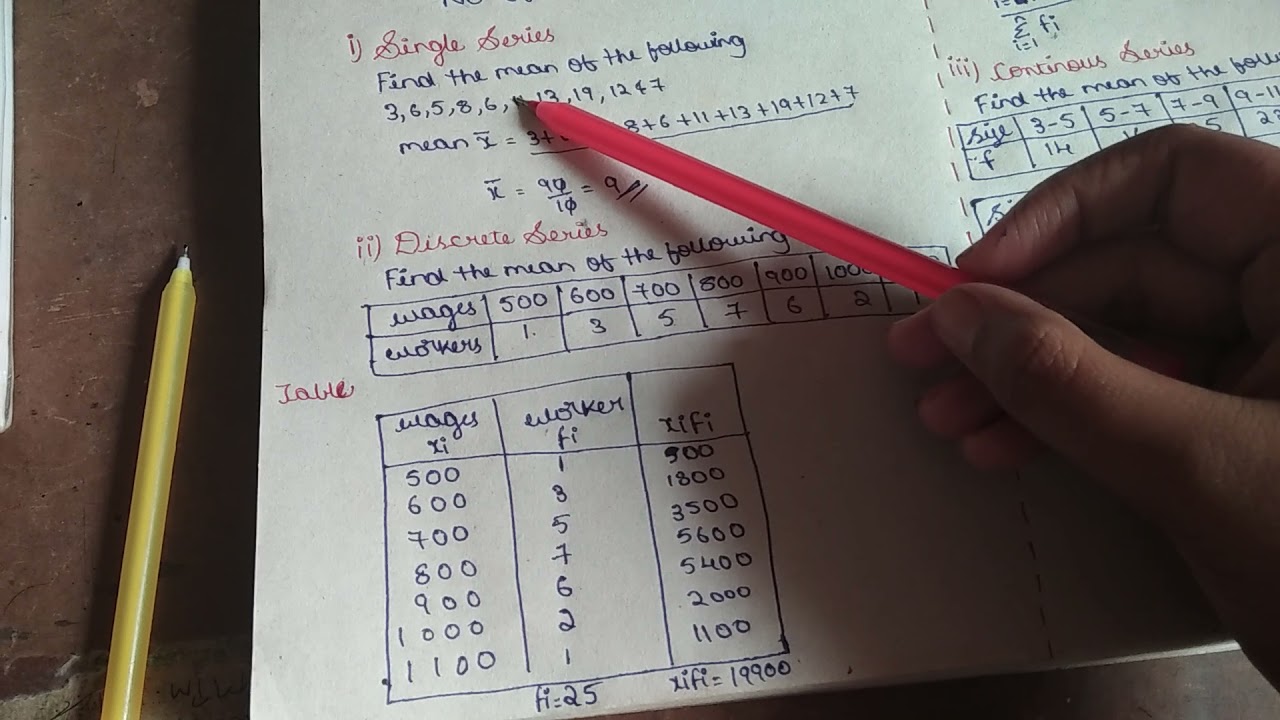 i) Single Series
Find the mean of the following
3,6,5,8,6, 13,19,12&7
mean x̄ = 3+ 8+6+11+13+19+12+7
x̄ = 90/10 = 9
ii) Discrete Series
Find the mean of the following
wages 500 600 700 800 900 1000
workers 1. 3 5 7 6 2 1
Table
wages xi worker fi xifi
500 1 500
600 3 1800
700 5 3500
800 7 5600
900 6 5400
1000 2 2000
1100 1 1100
fi=25 xifi=19900
n
Σ fi
i=1
iii) Continous Series
Find the mean of the
size 3-5 5-7 7-9 9-11
f 14